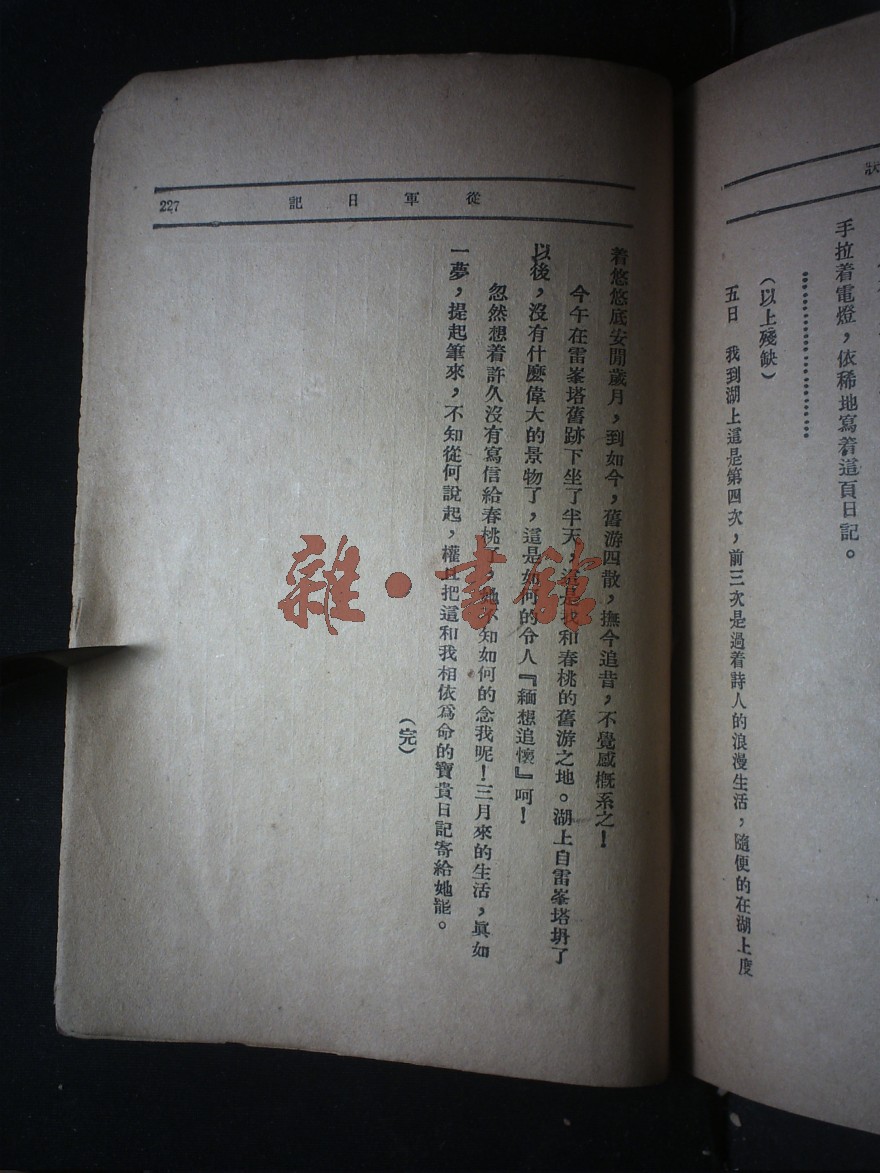 手拉着電燈，依稀地寫着這頁日記。
………………………
（以上殘缺）
五日　我到湖上這是第四次，前三次是過着詩人的浪漫生活，隨便的在湖上度
從軍日記
227
着悠悠底安閒歲月，到如今，舊游四散，撫今追昔，不覺感概系之！
今午在雷峯塔舊跡下坐了半天，這是我和春桃的舊游之地。湖上自雷峯塔坍了
以後，沒有什麼偉大的景物了，這是如何的令人『緬想追懷』呵！
忽然想着許久沒有寫信給春桃了，她不知如何的念我呢！三月來的生活，眞如
一夢，提起筆來，不知從何說起，權且把這和我相依爲命的寶貴日記寄給她罷。
（完）
雜·書館